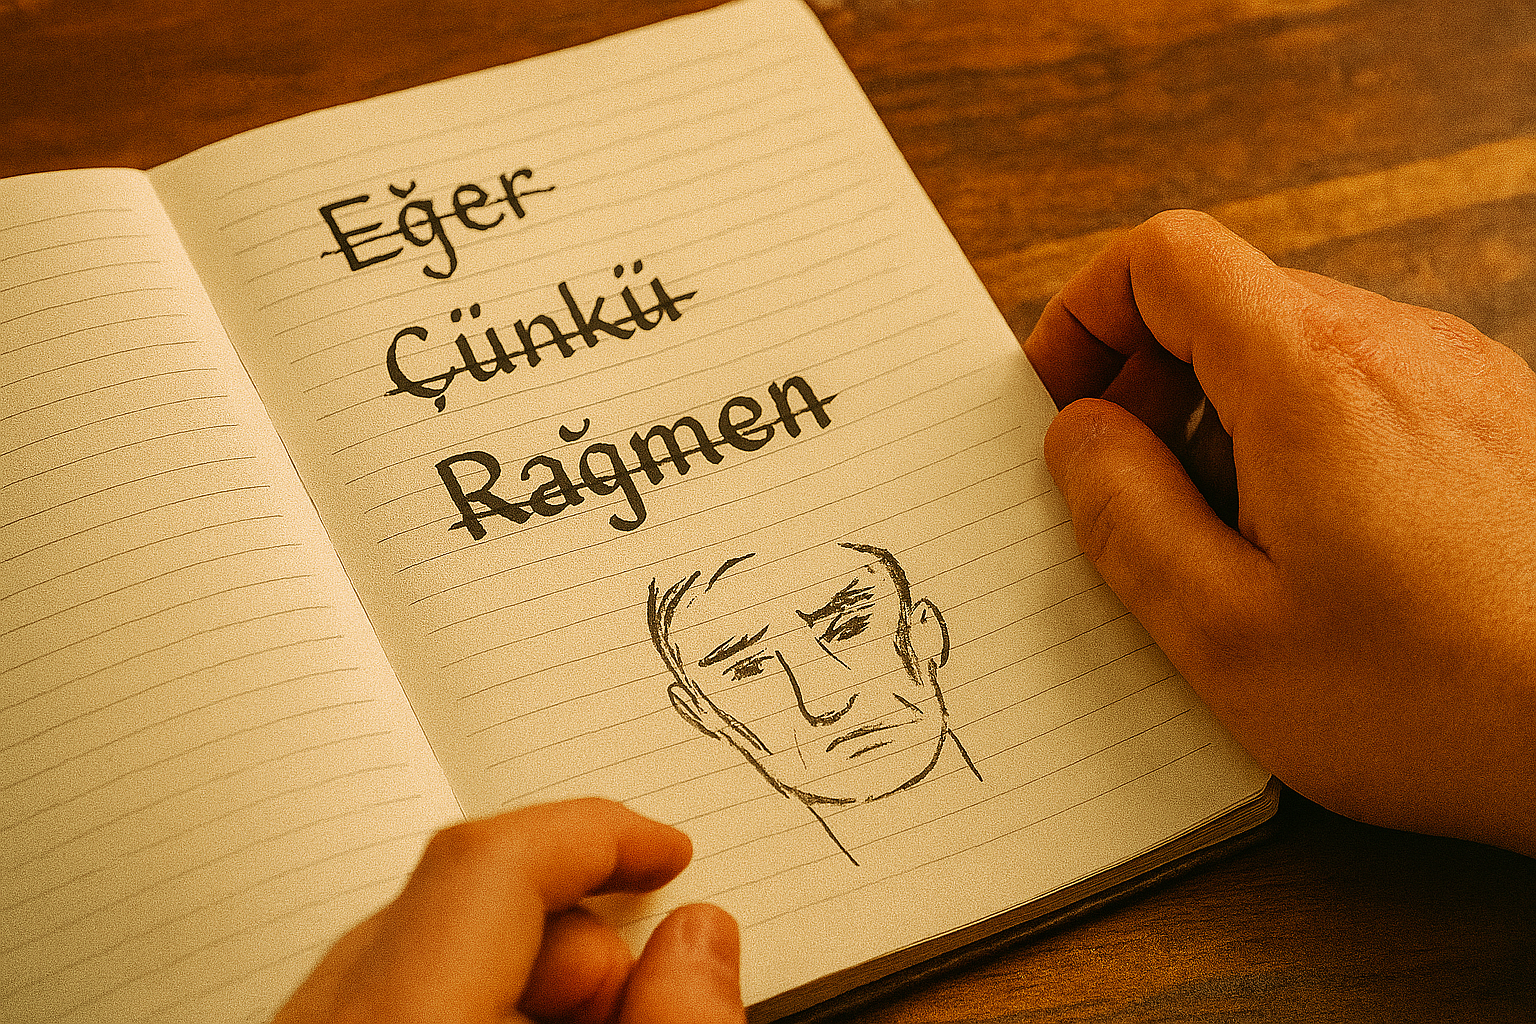 Eğer
Çünkü
Rağmen